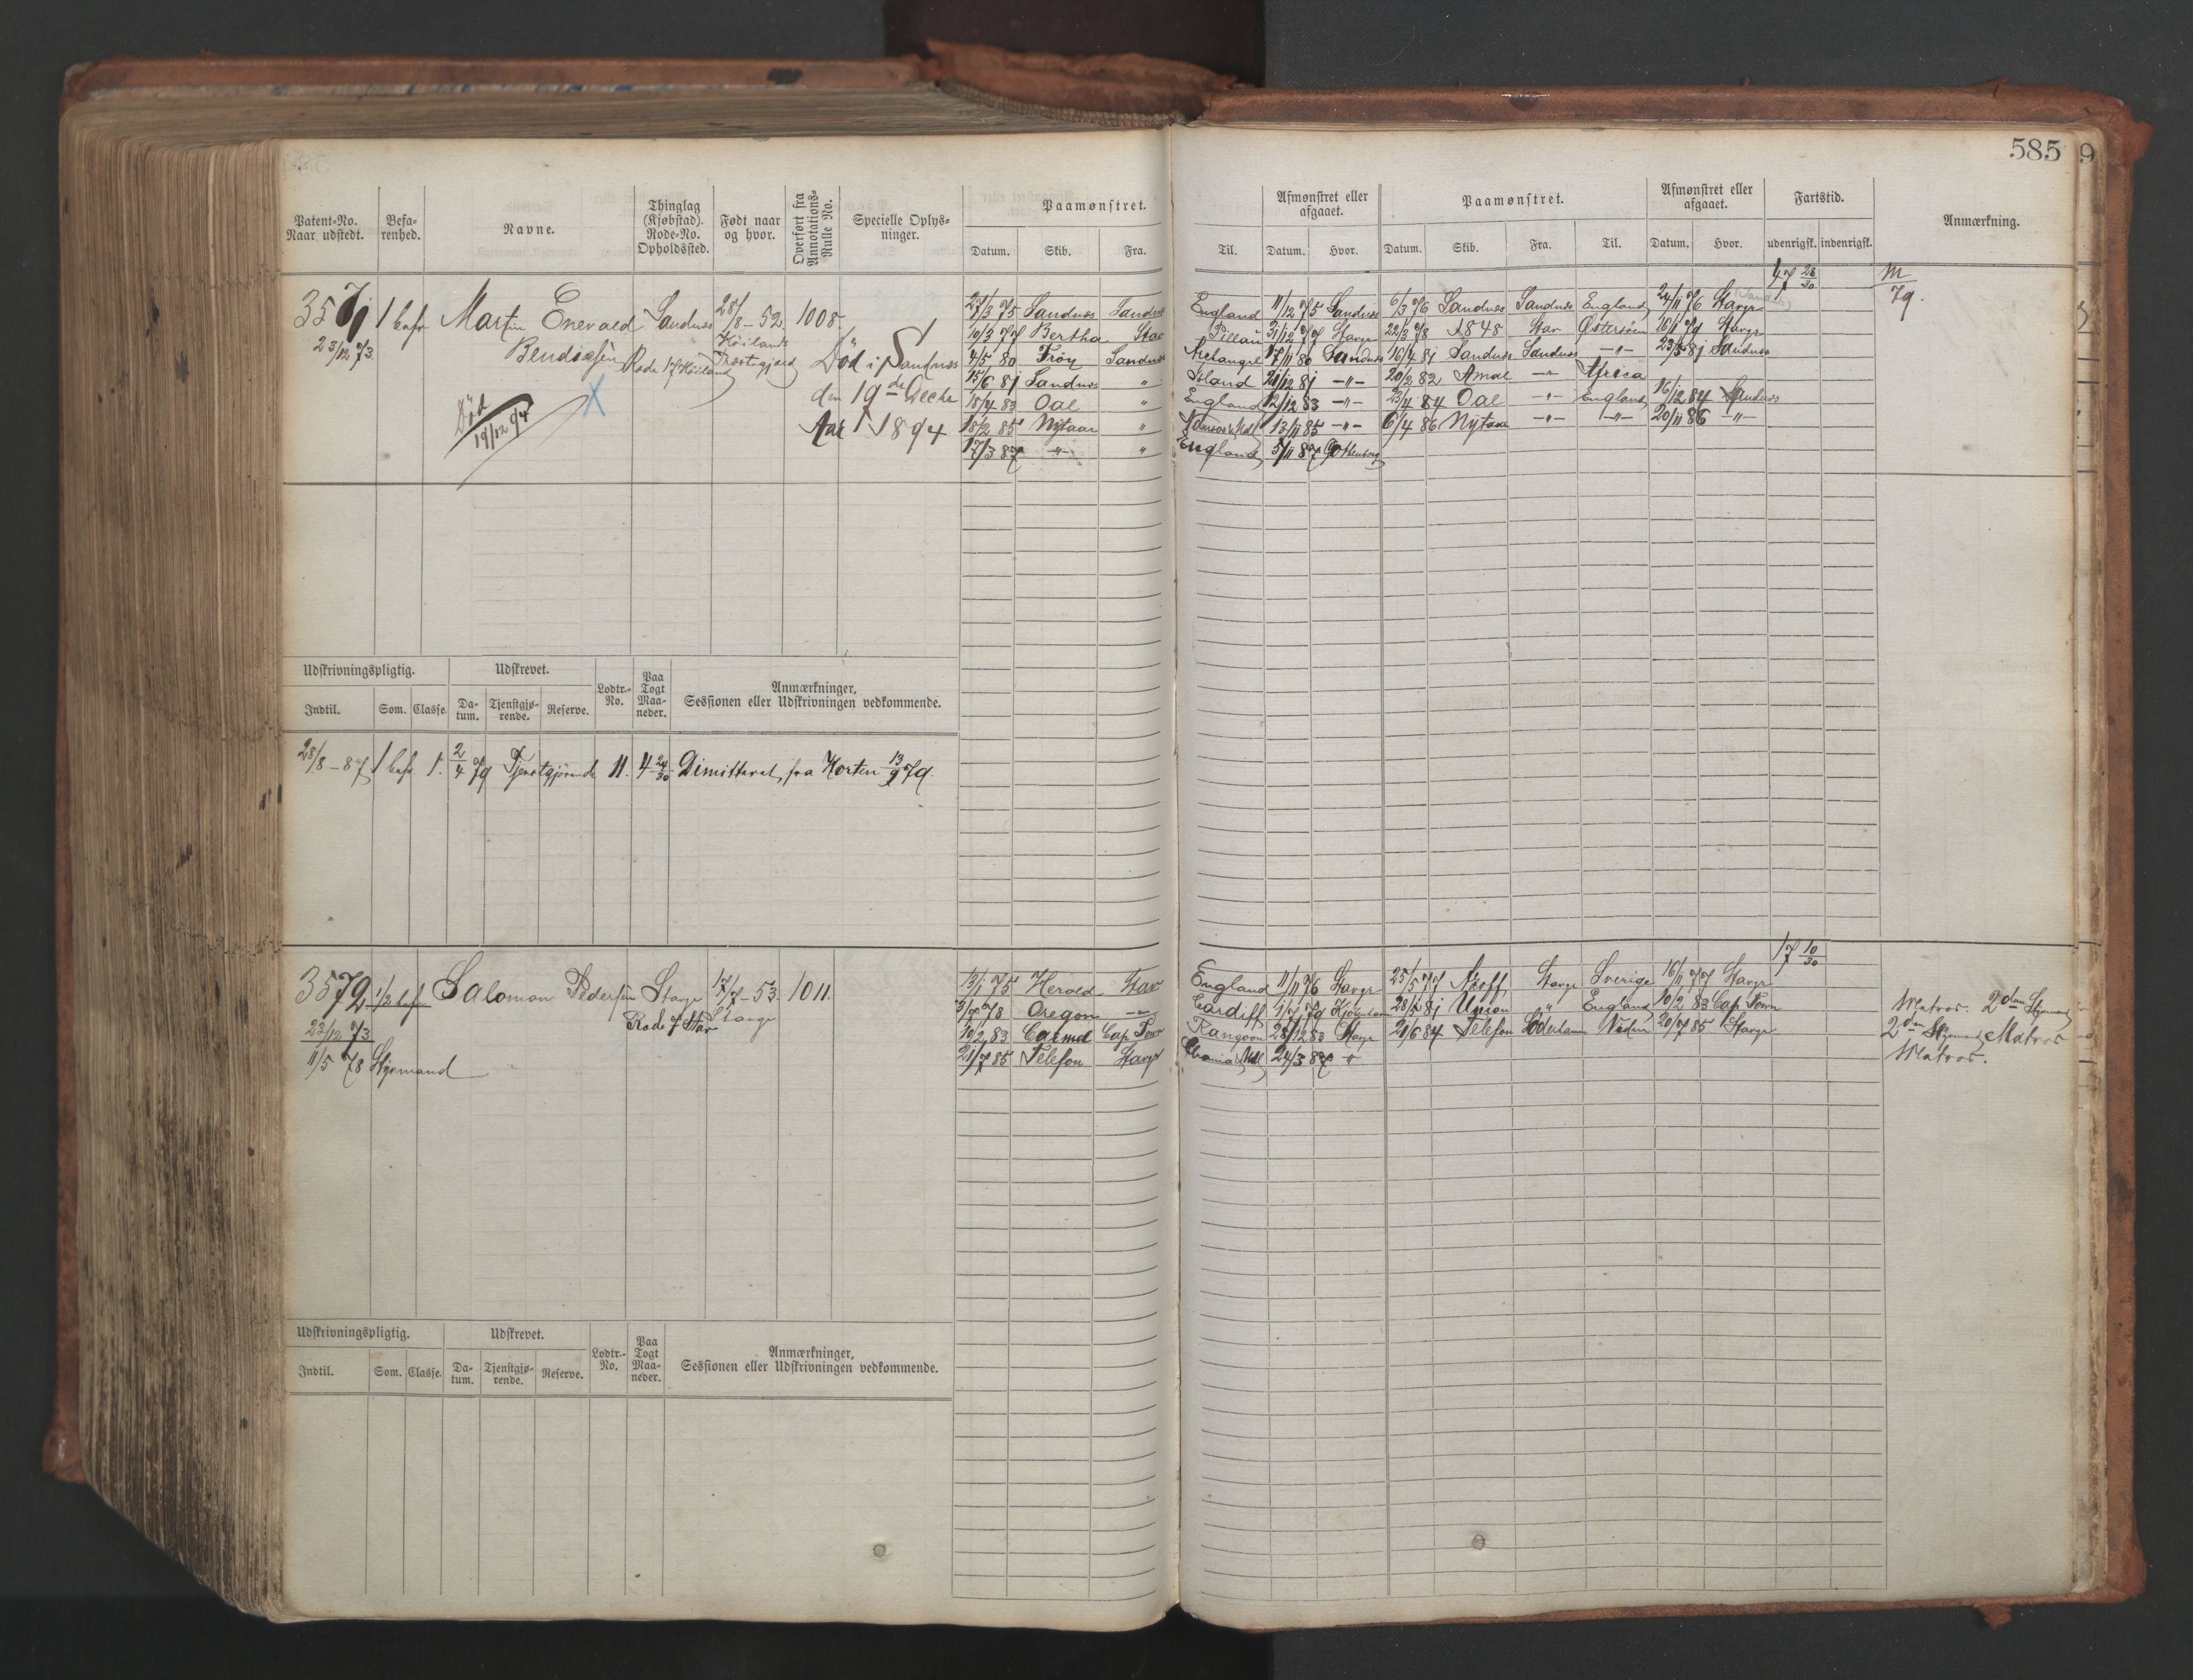 585 9
Patent-No. Naar udstedt. Befa-renhed. Navne. Thinglag (Kjøbstad). Rode-No. Opholdssted. Født naar og hvor. Overført fra Annotations-Rulle No. Specielle Oplys-ninger. Paamønstret. Afmønstret eller afgaaet. Paamønstret. Afmønstret eller afgaaet. Fartstid. Anmærkning.
Datum. Skib. Fra. Til. Datum. Hvor. Datum. Skib. Fra. Til. Datum. Hvor. udenrigsk. indenrigsk.
28/30 M/79.
3571 1 bef. Martin Enevald Sandnes 28/8-52. 1008.
23/12 73. Bendixsen Rode 17 Høiland Høilands
Død i Sandnes
den 19de Decbr
Aar 1894
Død
19/12 94
27/3 75 Sandnes Sandnes England 11/12 75 Sandnes 6/3 76 Sandnes Sandnes England 24/11 76 Stavgr
10/3 77 Bertha Stav Pillau 31/12 77 Stavgr 22/3 78 1848 Stav Østersøen 16/1 79 Stavgr
4/5 80 Frøy Sandnes Archangel 17/11 80 Sandnes 16/4 81 Sandnes Sandnes -"- 23/5 81 Sandnes
15/6 81 Sandnes " Island 21/12 81 -"- 20/2 82 Amal -"- Africa
18/4 83 Oal " England 12/12 83 -"- 23/4 84 Oal -"- England 16/12 84 Sandnes
18/2 85 Nytaar " 13/11 85 -"- 6/4 86 Nytaar -"- -"- 20/11 86 -"-
17/3 87 -"- " England 5/11 87 Gothenborg
Udskrivningspligtig. Udskrevet. Lodtr.-No. Paa Togt Maa-neder. Anmærkninger, Sessionen eller Udskrivningen vedkommende.
Indtil. Som. Classe. Da-tum. Tjenstgjø-rende. Reserve.
28/8-87 1 bef. 1. 2/4 79 Tjenstgjørende 11. 4 24/30 Dimitteret fra Horten 13/9 79.
17 10/30
3572 1/2 bef. Salomon Pedersen Stavgr 17/7-53. 1011.
23/12 73. Rode 7 Stav Stavgr
11/5 78 Styrmand
13/1 75 Herold Stav England 11/11 76 Stavgr 25/5 77 Stavgr Sverige 16/11 77 Stavgr
3/7 78 Oregon -"- Cardiff 28/5 81 Union " England 10/2 83 Cap Town Matros. 2den Styrmand
10/2 83 Carmel Cap Town Rangoon 28/12 83 Stavgr 21/6 84 Telefon Söderhamn 20/7 85 Stavgr 2den Styrmand Matros
21/7 85 Telefon Stavgr 24/3 87 Matros.
Udskrivningspligtig. Udskrevet. Lodtr.-No. Paa Togt Maa-neder. Anmærkninger, Sessionen eller Udskrivningen vedkommende.
Indtil. Som. Classe. Da-tum. Tjenstgjø-rende. Reserve.